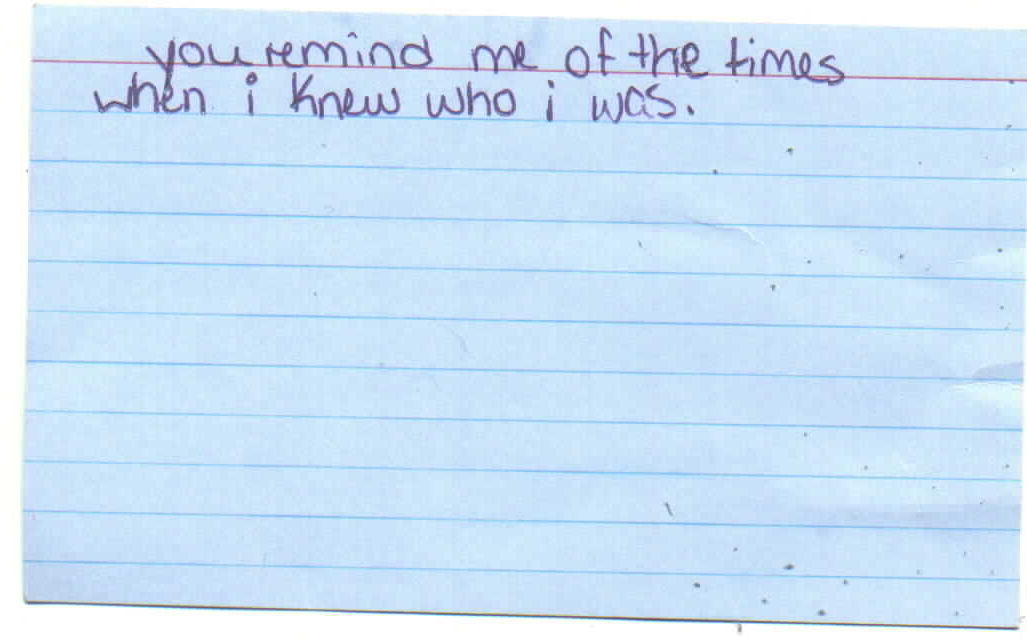 you remind me of the times
when i knew who i was.